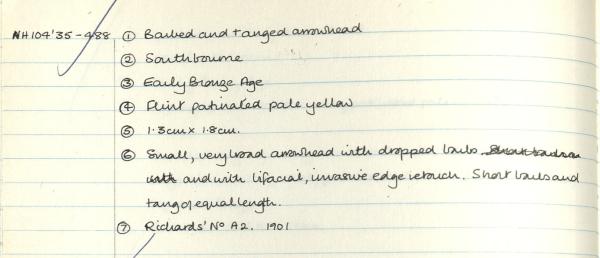 NH104'35-488 ① Barbed and tanged arrowhead
② Southbourne
③ Early Bronze Age
④ Flint patinated pale yellow
⑤ 1.3cm x 1.8cm.
⑥ Small, very broad arrowhead with dropped barbs.
and with bifacial, invasive edge retouch. Short barbs and
tang of equal length.
⑦ Richards' No A2. 1901